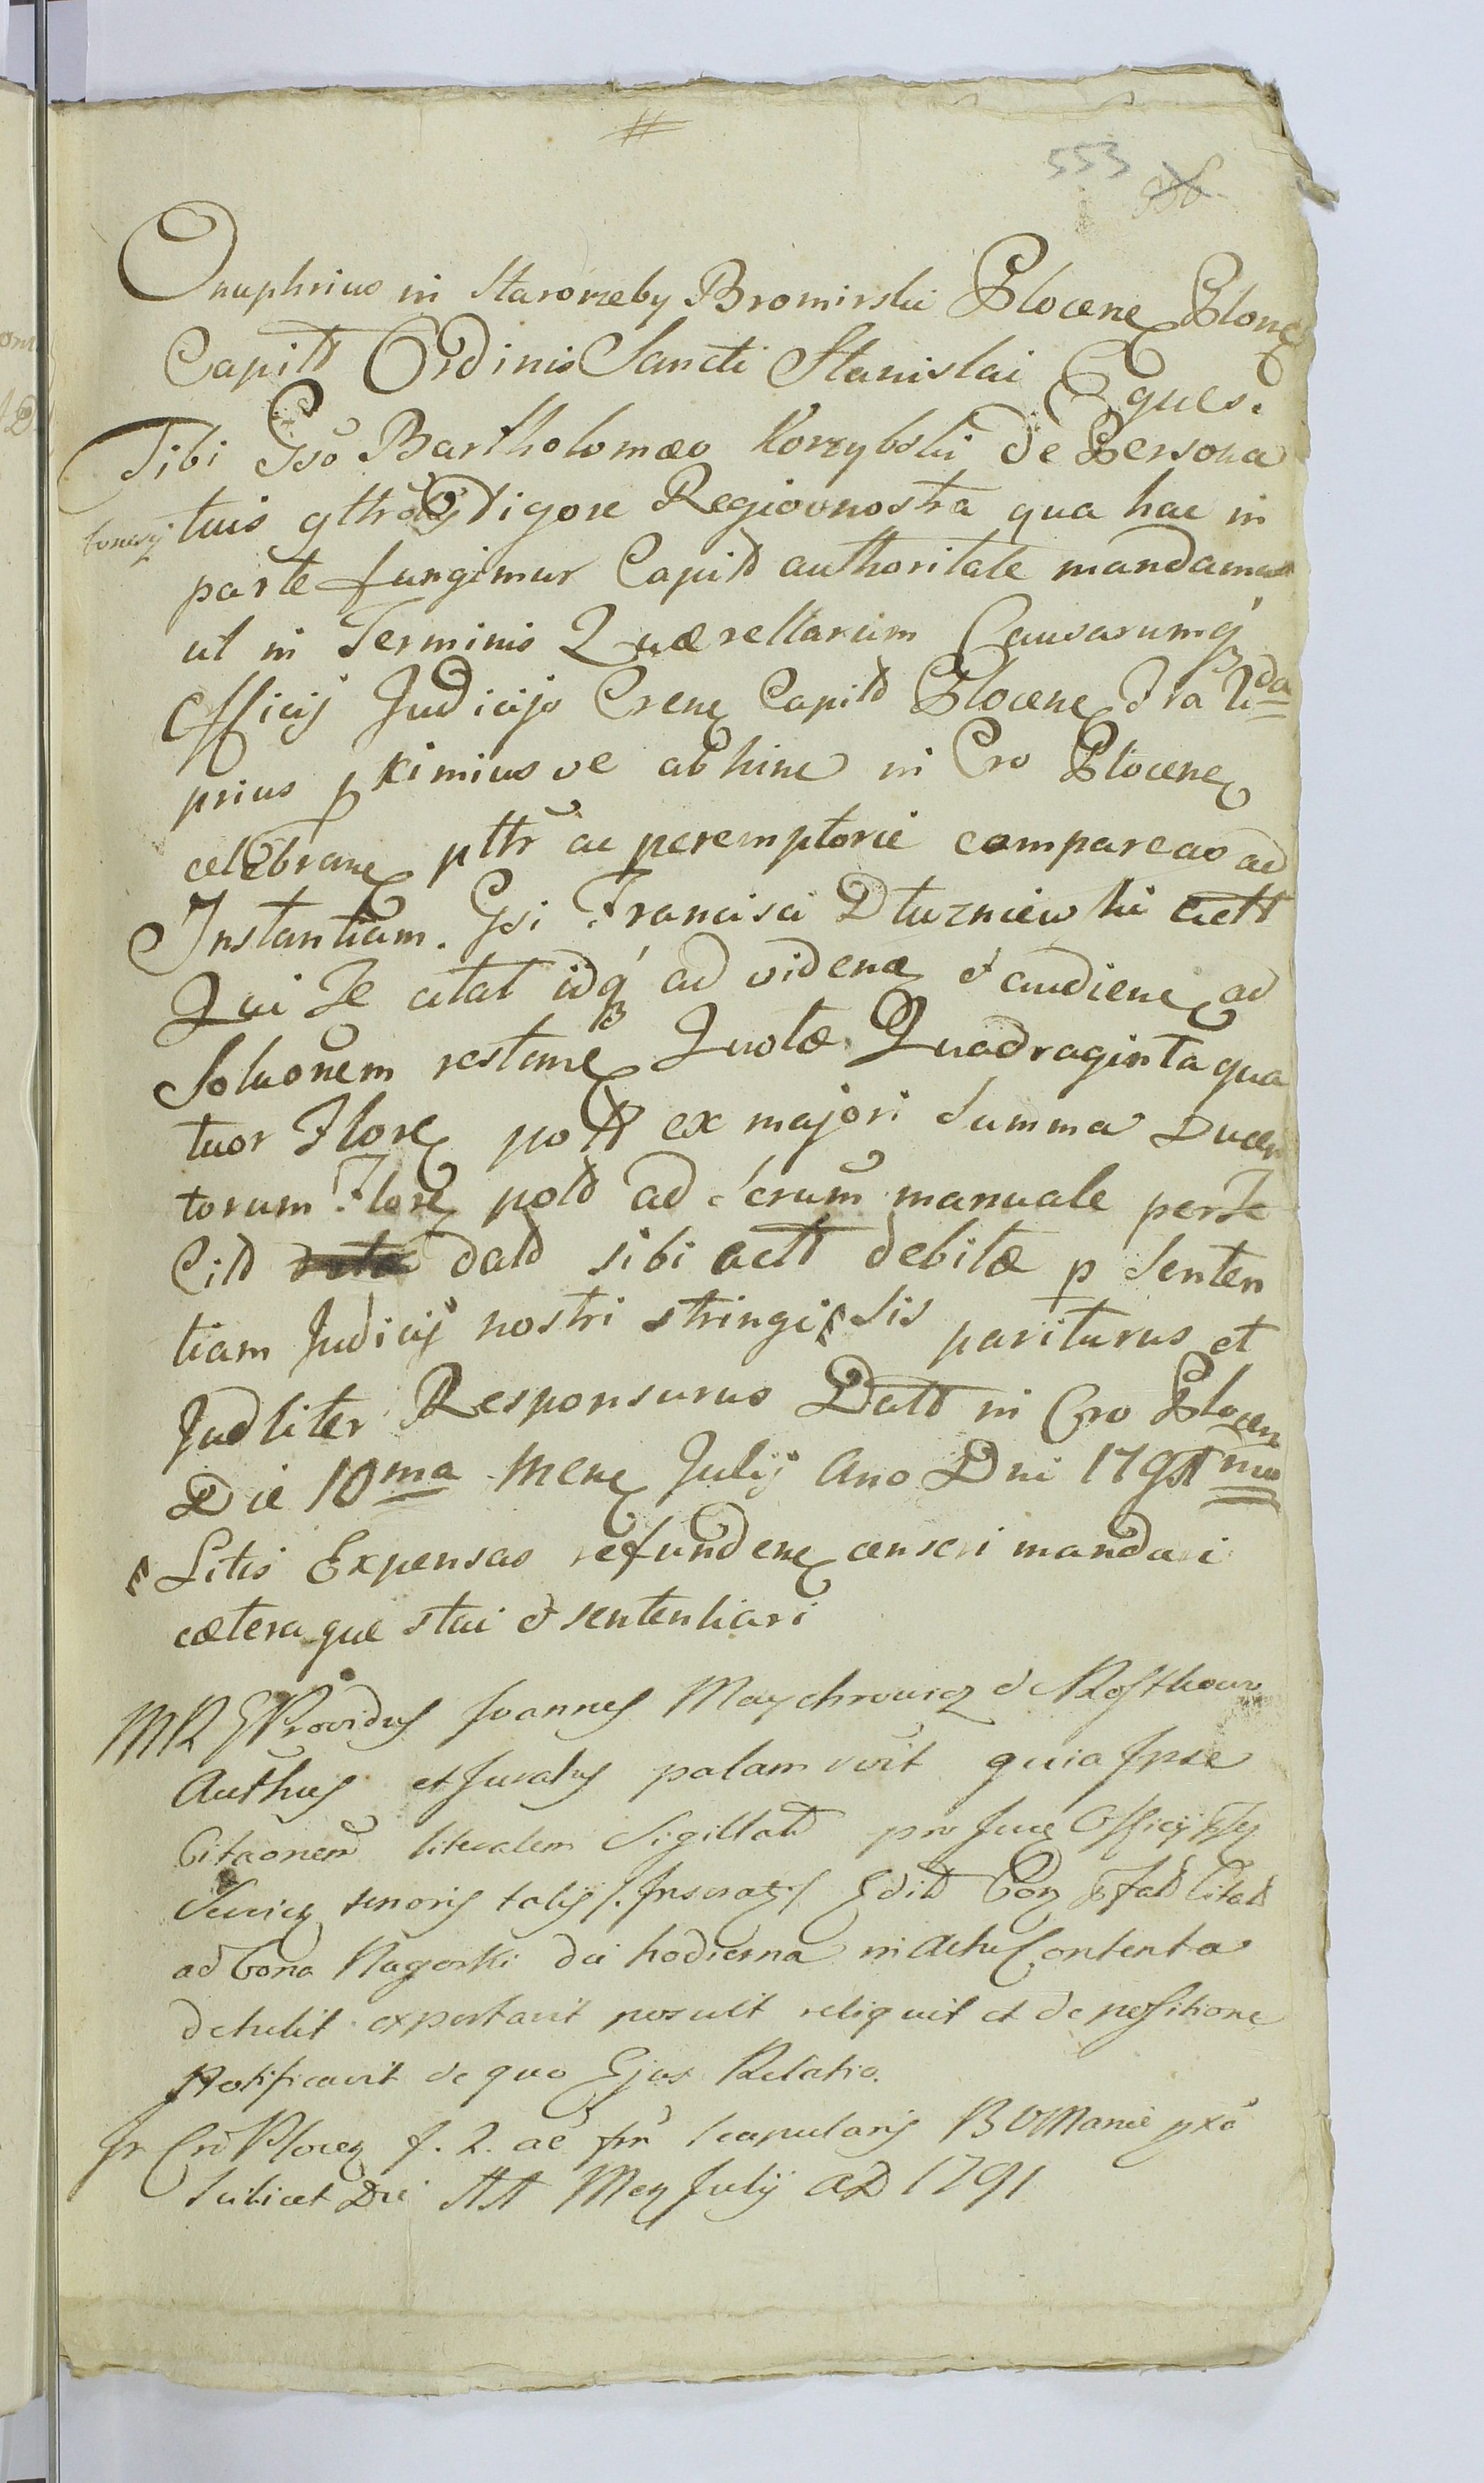 #
553
Onuphrius in Starorzeby Bromirski Plocene Plone
Capitt Ordinis Sancti Stanislai Eques.
Tibi Gso Bartholomæo Korzybski de Persona
bonisq tuis gttr Vigore Regio nostra qua hac in
parte fungimur Capitt authoritate mandamus
ut in Terminis Quærellarum Causarumq
Officij Judicijs Crene Capitt Plocene Fra 2da
prius pximius ve abhinc in Cro Plocene
celebrane pttr ac peremptorie compareas ad
Instantiam Gsi Francisci Dłuzniewski actt
Qui Te citat idq ad videne & audiene ad
Soluonem restane Quotæ Quadraginta qua
tuor Flore poltt ex majori Summa Ducen
torum Flore poltt ad Scrum manuale per Te
Citt datt sibi actt debitæ p Senten
tiam Judicij nostri stringi sis pariturus et
Judliter Responsurus Datt in Cro Plocen
Die 10ma Mene Julij Ano Dni 1791mo
Litis Expensas refundene censeri mandari
cæteraque stai & sententiari
MR Providus Joannes Maychrowicz de Rostkowo
Authus et Juratus palam rcvit quia Ipse
Citaonem literalem Sigillatt pro Juce Officij
tenoris talis /. Inseraz / Edid Con Citatt
ad bona Nagorki die hodierna in Actu Contenta
detulit exportavit posuit reliquit et de positione
Notificavit de quo Ejus Relatio.
In Cro Plocen f. 2. ac Scapularis B V Mariæ pxa
Scilicet Die 11 Men Julij AD 1791